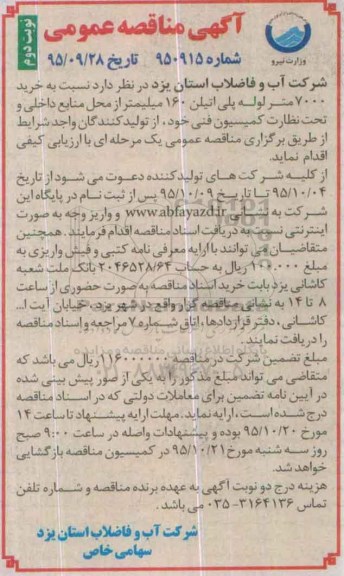 نوبت دوم
آگهی مناقصه عمومی
شماره ۹۵۰۹۱۵ تاریخ ۹۵/۰۹/۲۸
وزارت نیرو
شرکت آب و فاضلاب استان یزد در نظر دارد نسبت به خرید
۷۰۰۰ متر لوله پلی اتیلن ۱۶۰ میلیمتر از محل منابع داخلی و
تحت نظارت کمیسیون فنی خود، از تولیدکنندگان واجد شرایط
از طریق برگزاری مناقصه عمومی یک مرحله ای با ارزیابی کیفی
اقدام نماید.
از کلیه شرکت های تولیدکننده دعوت می شود از تاریخ
۹۵/۱۰/۰۴ تا تاریخ ۹۵/۱۰/۰۹ پس از ثبت نام در پایگاه این
شرکت به نشانی www.abfayazd.ir و واریز وجه به صورت
اینترنتی نسبت به دریافت اسناد مناقصه اقدام فرمایند. همچنین
متقاضیان می توانند با ارایه معرفی نامه کتبی و فیش واریزی به
مبلغ ۱۰۰.۰۰۰ ریال به حساب ۲۰۴۶۵۲۸/۶۴ بانک ملت شعبه
کاشانی یزد بابت خرید اسناد مناقصه به صورت حضوری از ساعت
۸ تا ۱۴ به نشانی مناقصه گزار واقع در شهر یزد، خیابان آیت ا...
کاشانی، دفتر قراردادها، اتاق شماره ۷ مراجعه و اسناد مناقصه
را دریافت نمایند.
مبلغ تضمین شرکت در مناقصه ۱۱۶۰۰۰۰۰۰ ریال می باشد که
متقاضی می تواند مبلغ مذکور را به یکی از صور پیش بینی شده
در آیین نامه تضمین برای معاملات دولتی که در اسناد مناقصه
درج شده است، ارایه نماید. مهلت ارایه پیشنهاد تا ساعت ۱۴
مورخ ۹۵/۱۰/۲۰ بوده و پیشنهادات واصله در ساعت ۹:۰۰ صبح
روز سه شنبه مورخ ۹۵/۱۰/۲۱ در کمیسیون مناقصه بازگشایی
خواهد شد.
هزینه درج دو نوبت آگهی به عهده برنده مناقصه و شماره تلفن
تماس ۳۱۶۴۱۳۶-۰۳۵ می باشد.
شرکت آب و فاضلاب استان یزد
سهامی خاص